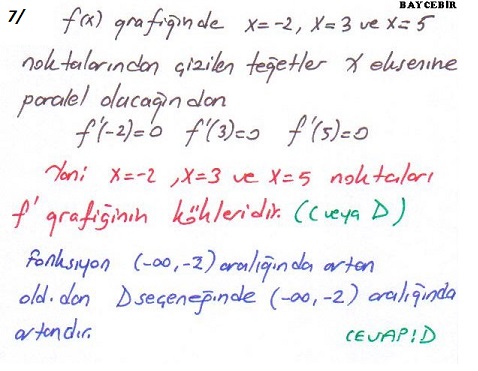 BAYCEBİR
7/ f(x) grafiğinde x=-2, x=3 ve x=5
noktalarından çizilen teğetler x eksenine
paralel olacağından
f'(-2)=0 f'(3)=0 f'(5)=0
Yani x=-2, x=3 ve x=5 noktaları
f' grafiğinin kökleridir. (C veya D)
Fonksiyon (-∞,-2) aralığında artan
old.dan D seçeneğinde (-∞,-2) aralığında
artandır.
CEVAP:D